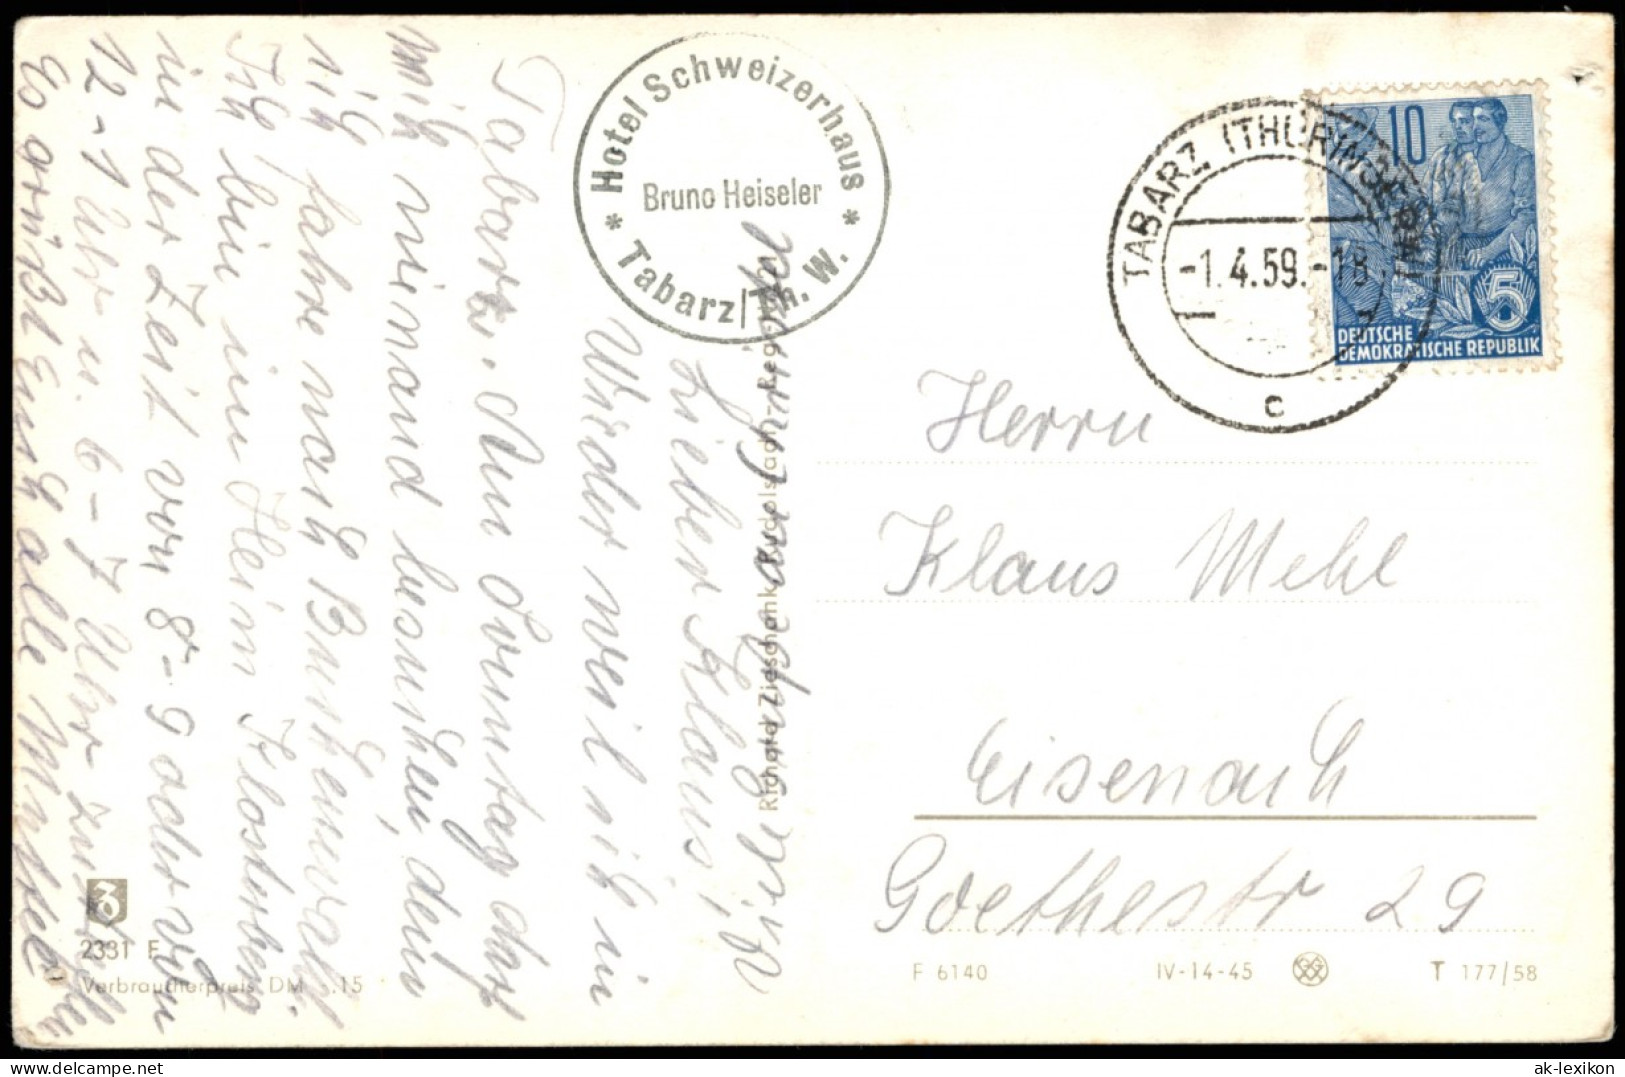 Hotel Schweizerhaus
Bruno Heiseler
* Tabarz/Th. W. *
TABARZ (THÜRINGER WALD)
-1.4.59.-18
c
10
5
DEUTSCHE
DEMOKRATISCHE REPUBLIK
Lieber Klaus!
Wieder weil ich in
Tabarz. Am Sonntag darf
mich niemand besuchen, denn
ich fahre nach
Ich bin im Heim Klosterberg
in der Zeit von 8-9 oder von
12-1 Uhr u. 6-7 Uhr
Es grüßt Euch alle Mutter
Herrn
Klaus Mehl
Eisenach
Goethestr 29
Richard Zieschank, Rudolstadt
2331 F
Verbraucherpreis DM .15
F 6140
IV-14-45
T 177/58
ak-lexikon